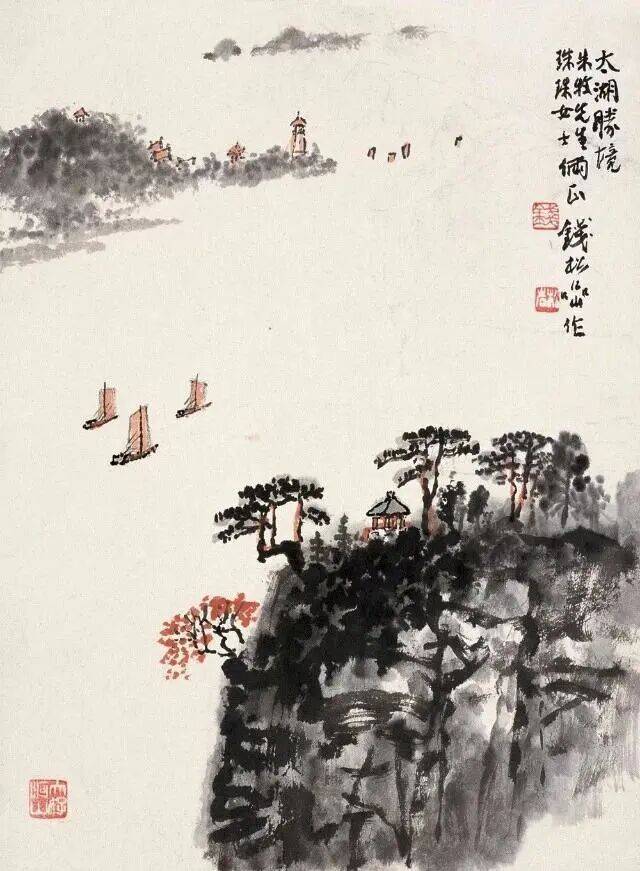 太湖勝境
朱牧先生
珠珠女士俩正 錢松喦作